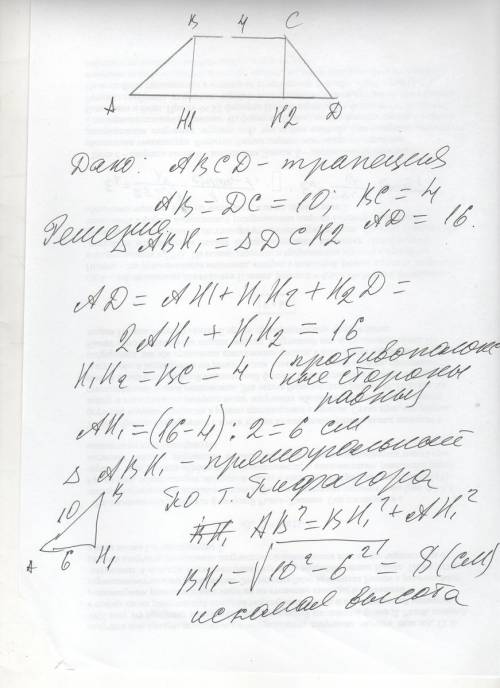 В 4 С
А Н1 Н2 D
Дано: ABCD - трапеция
AB = DC = 10; BC = 4
AD = 16.
Решение
Δ ABH₁ = Δ DCH2
AD = AH1 + H₁H₂ + H₂D =
2AH₁ + H₁H₂ = 16
H₁H₂ = BC = 4 (противополож-
ные стороны
равны)
AH₁ = (16-4) : 2 = 6 см
Δ ABH₁ - прямоугольный
По т. Пифагора
AB² = BH₁² + AH₁²
10 B
A 6 H₁
BH₁ = √10² - 6² = 8 (см)
искомая высота